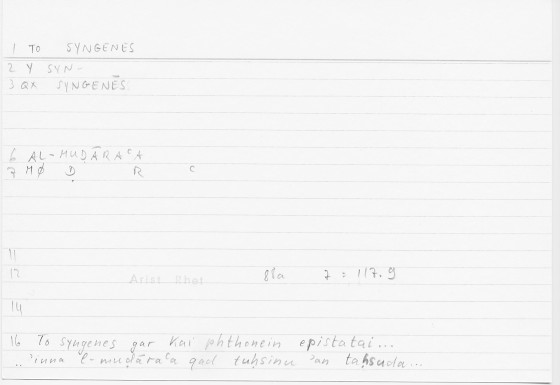 1 TO SYNGENES
2 Y SYN-
3 QX SYNGENĒS
6 AL-MUḌĀRAʿA
7 MØ Ḍ R ʿ
11
12 Arist Rhet 88a 7 = 117.9
14
16 To syngenes gar kai phthonein epistatai...
.. 'inna l-muḍāraʿa qad tuḥsinu 'an taḥsuda...